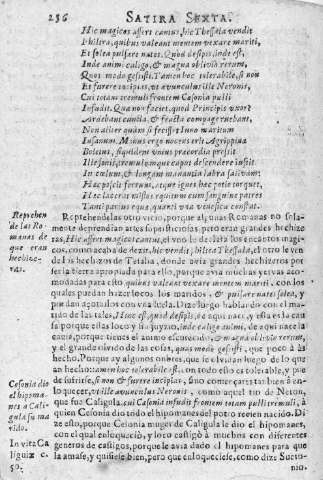 256 SATIRA SEXTA.
Hic magicos affert cantus, hic Thessala vendit
Philtra, quibus valeant mentem vexare mariti,
Et solea pulsare nates. Quod desipis, inde est,
Inde animi caligo, & magna oblivio rerum,
Quas modo gessisti. Tamen hoc tolerabile, si non
Et furere incipias, ut avunculus ille Neronis,
Cui totam tremuli frontem Cesonia pulli
Infudit. Que non faciet, quod Principis uxor?
Ardebant cuncta, & fracta compage ruebant,
Non aliter quàm si fecisset Iuno maritum
Insanum. Minus ergo nocens erit Agrippinæ
Boletus, siquidem unius præcordia pressit
Ille senis, tremulumque caput descendere iussit
In cœlum, & longam manantia labra salivam:
Hæc poscit ferrum, atque ignes hæc potio torquet,
Hæc lacerat mistos equitum cum sanguine patres
Tanti partus equæ, quanti una venefica constat.
Reprehen
de las Ro
manas de
que eran
hechize-
ras.
Reprehendelas otro vicio, porque algunas Romanas no sola-
mente deprendian artes supersticiosas, pero eran grandes hechize
ras, Hic affert magicos cantus, el uno le da la lista los encantos magi-
cos, como acaba de dezir, hic vendit philtra Thessala, el otro le ven
de los hechizos de Tesalia, donde avia grandes hechizeros por
ser la tierra apropiada para ello, porque avia muchas yervas acomo-
dadas para esto quibus valeant vexare mentem mariti, con los
quales puedan hizer locos los maridos, & pulsare nates solea, y
puedan açotallos con una suela. Dize luego hablando con el ma-
rido de las tales, Hinc est, quod desipis, de aqui nace, y esta es la cau
sa porque estas loco y sin juyzio, inde caligo animi, de aqui nace la
caûa, porque tienes el animo escurecido, & magna oblivio rerum,
y el grande olvido de las cosas, quas modo gessisti, que poco à as
hecho. Porque ay algunos onbres, que se olvidan luego de lo que
an hecho: tamen hoc tolerabile est, con todo esso es tolerable, y pue
de sufrirse, si non & furere incipias, sino començares tambien à en-
loquecer, ut ille avunculus Neronis, como aquel tio de Neron,
que fue Caligula, cui Cesonia infudit frontem totam pulli tremuli, à
quien Cesonia dio todo el hipomanes del potro rezien nacido. Di
ze esto, porque Cesonia muger de Caligula le dio el hipomanes,
con el qual enloqueciò, y loco castigò à muchos con diferentes
generos de castigos, porque le dio el hipomanes para que
la amase, y quisiese bien, pero que enloqueciese, como dize Sueto-
nio.
Cesonia dio
el hipoma-
nes à Cali-
gula su ma
rido.
In vita Ca
ligulæ c.
50.